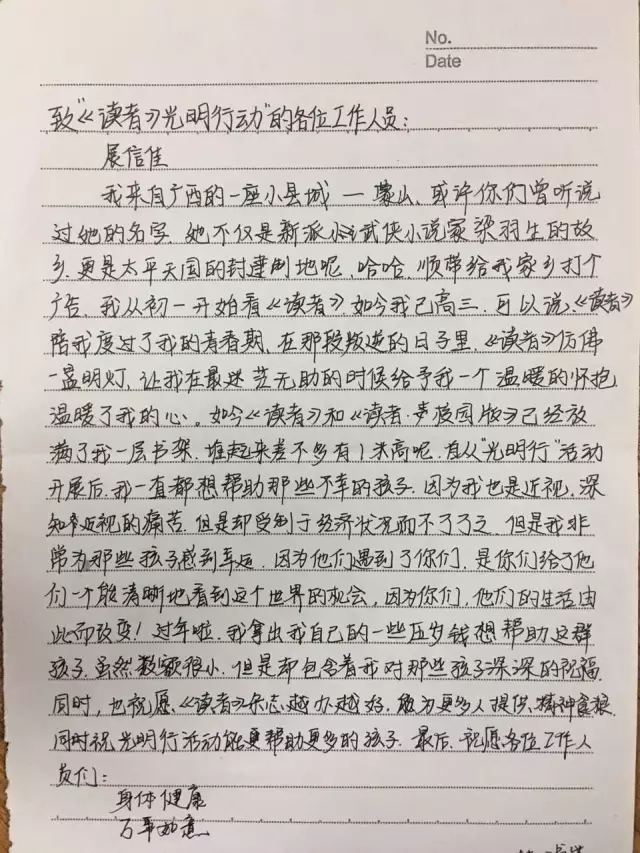 No.
Date
致“《读者》光明行动”的各位工作人员：
展信佳
我来自广西的一座小县城 — 蒙山，或许你们曾听说
过她的名字，她不仅是新派武侠小说家梁羽生的故
乡，更是太平天国的封建制地呢，哈哈，顺带给我家乡打个
广告，我从初一开始看《读者》，如今我已高三，可以说，《读者》
陪我度过了我的青春期，在那段叛逆的日子里，《读者》仿佛
一盏明灯，让我在最迷茫无助的时候给予我一个温暖的怀抱
温暖了我的心。如今《读者》和《读者·校园版》已经放
满了我一层书架，堆起来差不多有1米高呢，自从“光明行”活动
开展后，我一直都想帮助那些不幸的孩子，因为我也是近视，深
知近视的痛苦，但是却受制于经济状况而不了了之，但是我非
常为那些孩子感到幸运，因为他们遇到了你们，是你们给了他
们一个能清晰地看到这个世界的机会，因为你们，他们的生活由
此而改变！过年啦，我拿出我自己的一些压岁钱想帮助这群
孩子，虽然数额很小，但是却包含着我对那些孩子深深的祝福，
同时，也祝愿《读者》杂志越办越好，能为更多人提供精神食粮，
同时祝光明行活动能更帮助更多的孩子，最后，祝愿各位工作人
员们：
身体健康
万事如意